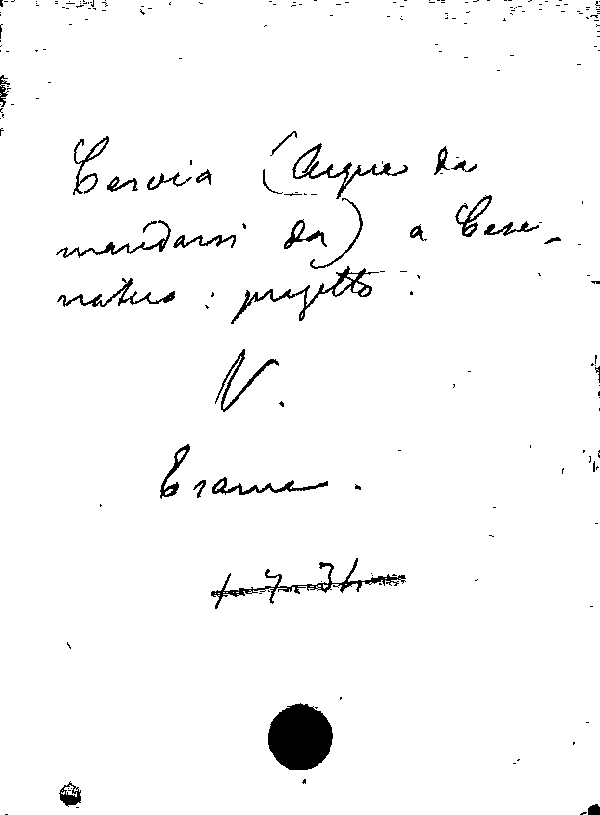 Cervia (Acque da
mandarsi da) a Cese-
natico: progetto:
V.
Esame.